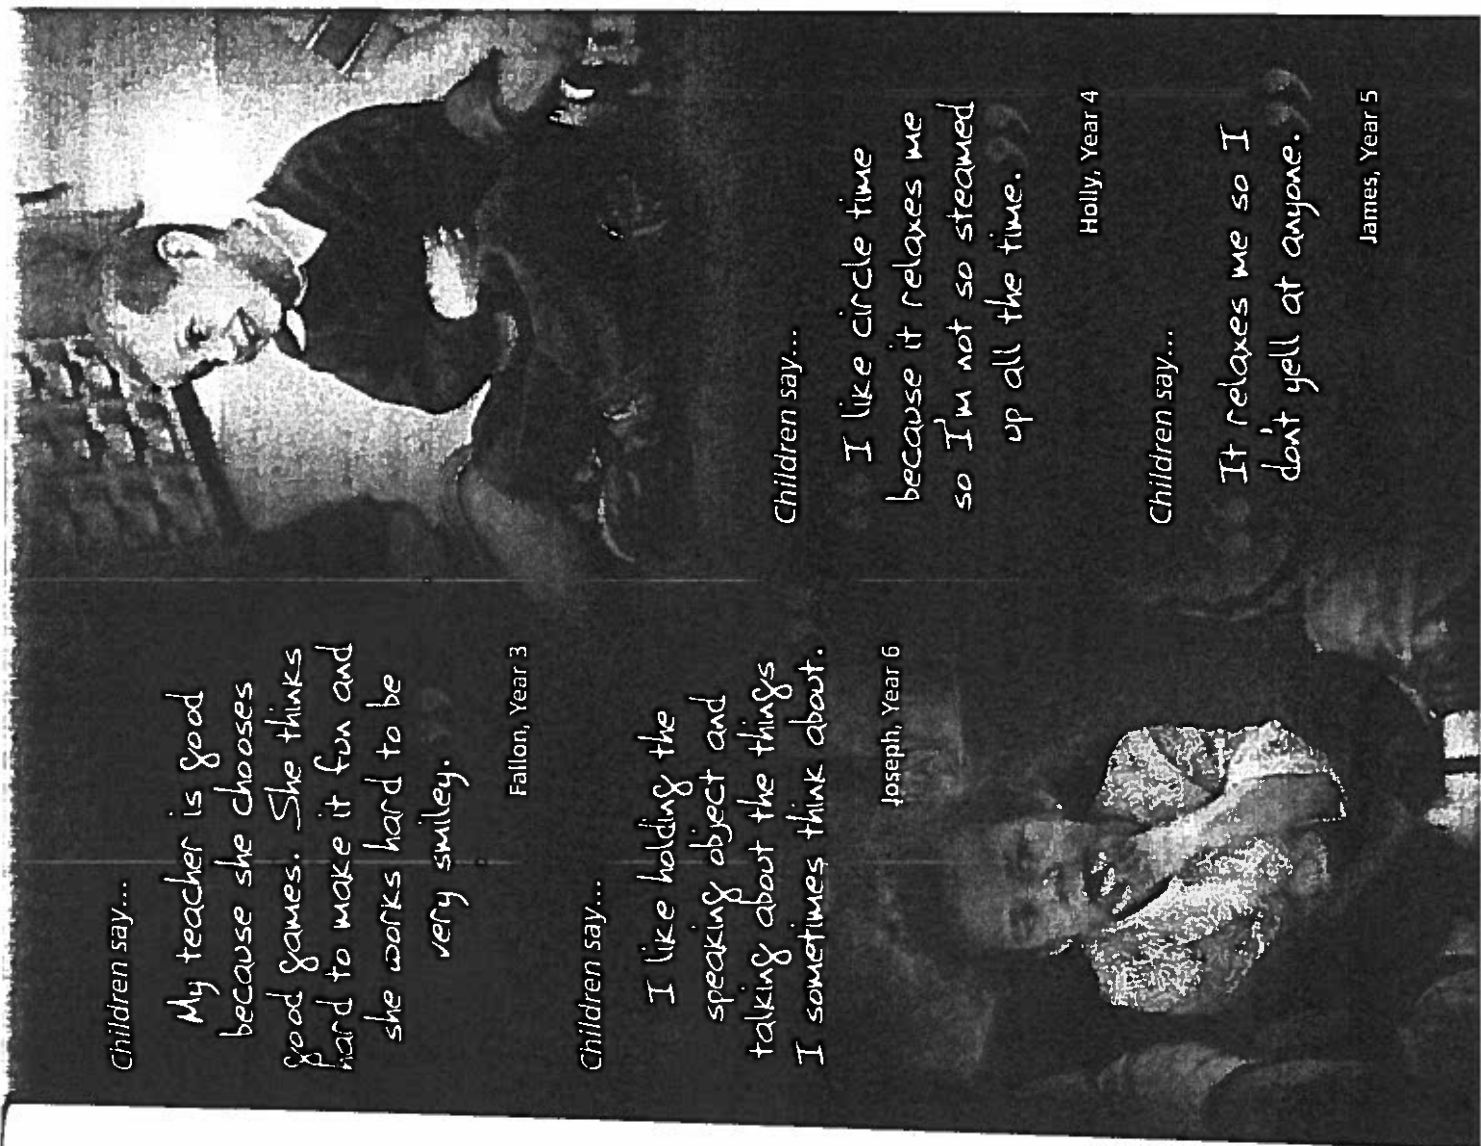 Children say...
My teacher is good
because she chooses
good games. She thinks
hard to make it fun and
she works hard to be
very smiley.
”
Fallon, Year 3
Children say...
I like holding the
speaking object and
talking about the things
I sometimes think about.
Joseph, Year 6
Children say...
“ I like circle time
because it relaxes me
so I'm not so steamed
up all the time. ”
Holly, Year 4
Children say...
“ It relaxes me so I
don't yell at anyone. ”
James, Year 5